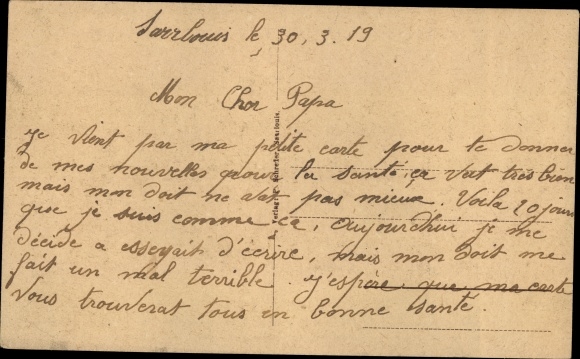 Sarrlouis le, 30. 3. 19
Mon Cher Papa
Je vient par ma petite carte pour te donner
de mes nouvelles pour la santé ça vat tres bien
mais mon doit ne vat pas mieux. Voila 20 jours
que je suis comme ça, aujourdhui je me
décide a esseyait d'écrire, mais mon doit me
fait un mal terrible. J'espère que ma carte
vous trouverat tous en bonne santé.
Verlag v. Schreter, Saarlouis.